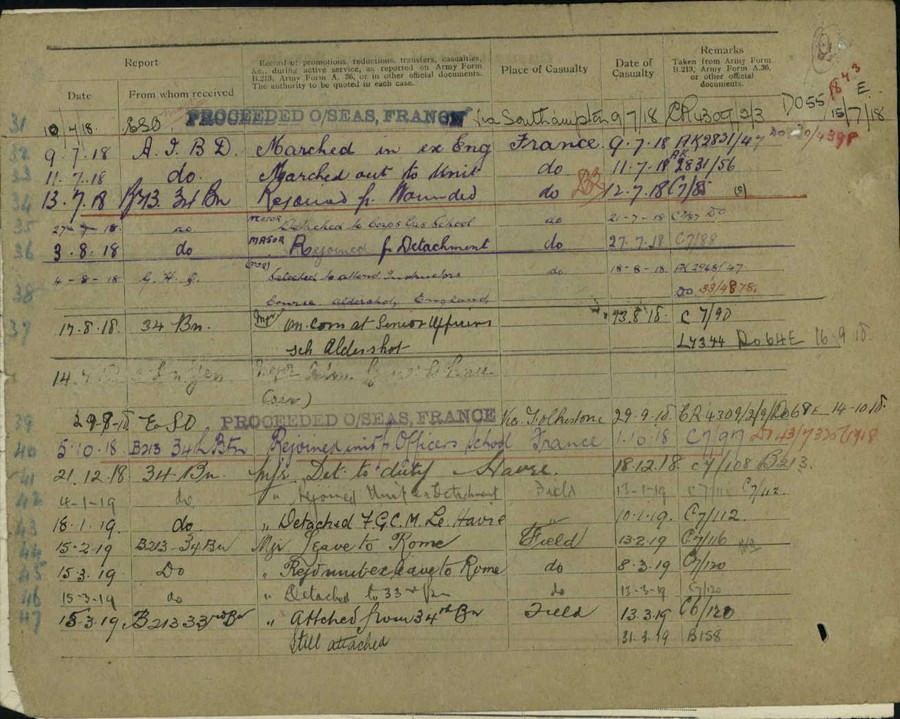 Report
Record of promotions, reductions, transfers, casualties,
&c., during active service, as reported on Army Form
B.213, Army Form A. 36, or in other official documents.
The authority to be quoted in each case.
Place of Casualty
Date of
Casualty
Remarks
Taken from Army Form
B.213, Army Form A.36,
or other official
documents.
Date
From whom received
31 7.18. ESO. PROCEEDED O/SEAS, FRANCE via Southampton 9/7/18 CR4309/2/3 DO55 E. 15/7/18
32 9.7.18 A.I.B.D. Marched in ex Eng France. 9.7.18 AK2831/47
33 11.7.18 do. Marched out to Unit do 11.7.18 AK2831/56
34 13.7.18 B213 34 Bn Rejoined f. Wounded do 12.7.18 C7/85
35 27-7-18 do MAJOR Detached to Corps Gas School do 21-7-18 C7/87
36 3.8.18 do MAJOR Rejoined f Detachment do 27.7.18 C7/88
4-8-18 G.H.Q. Detached to attend Instructors do 18-8-18. AK2968/47
38 Course Aldershot, England DO 33/4878.
37 17.8.18. 34 Bn. Major on Com at Senior Officers 8.18. C7/90
Sch Aldershot L7344 Do64E 16.9.18
14.
39 29.8.18 ESO. PROCEEDED O/SEAS, FRANCE Via. Folkestone 29.9.18 CR4309/2/9 Do68E 14-10.18.
40 5.10.18 B213 34th Btn Rejoined unit f Officers School France 1.10.18 C7/97
41 21.12.18 34 Bn. Mjr. Det. to duty Havre. 18.12.18. C7/108 B213.
42 4-1-19 do " rejoined Unit ex Detachment Field 13-1-19 C7/112.
43 18.1.19. do. " Detached F.G.C.M. Le Havre " 10.1.19. C7/112.
44 15.2.19 B213-34Bn Mjr Leave to Rome Field 13.2.19 C7/116
45 15.3.19 Do " Rejd unit ex leave to Rome do 8.3.19 C7/120
46 15-3-19 do " Detached to 33rd Bn do 13-3-19 C7/120
47 15.3.19 B213 33rd Bn " Attched from 34th Bn Field 13.3.19 C6/120
Still attached 31.3.19 B158